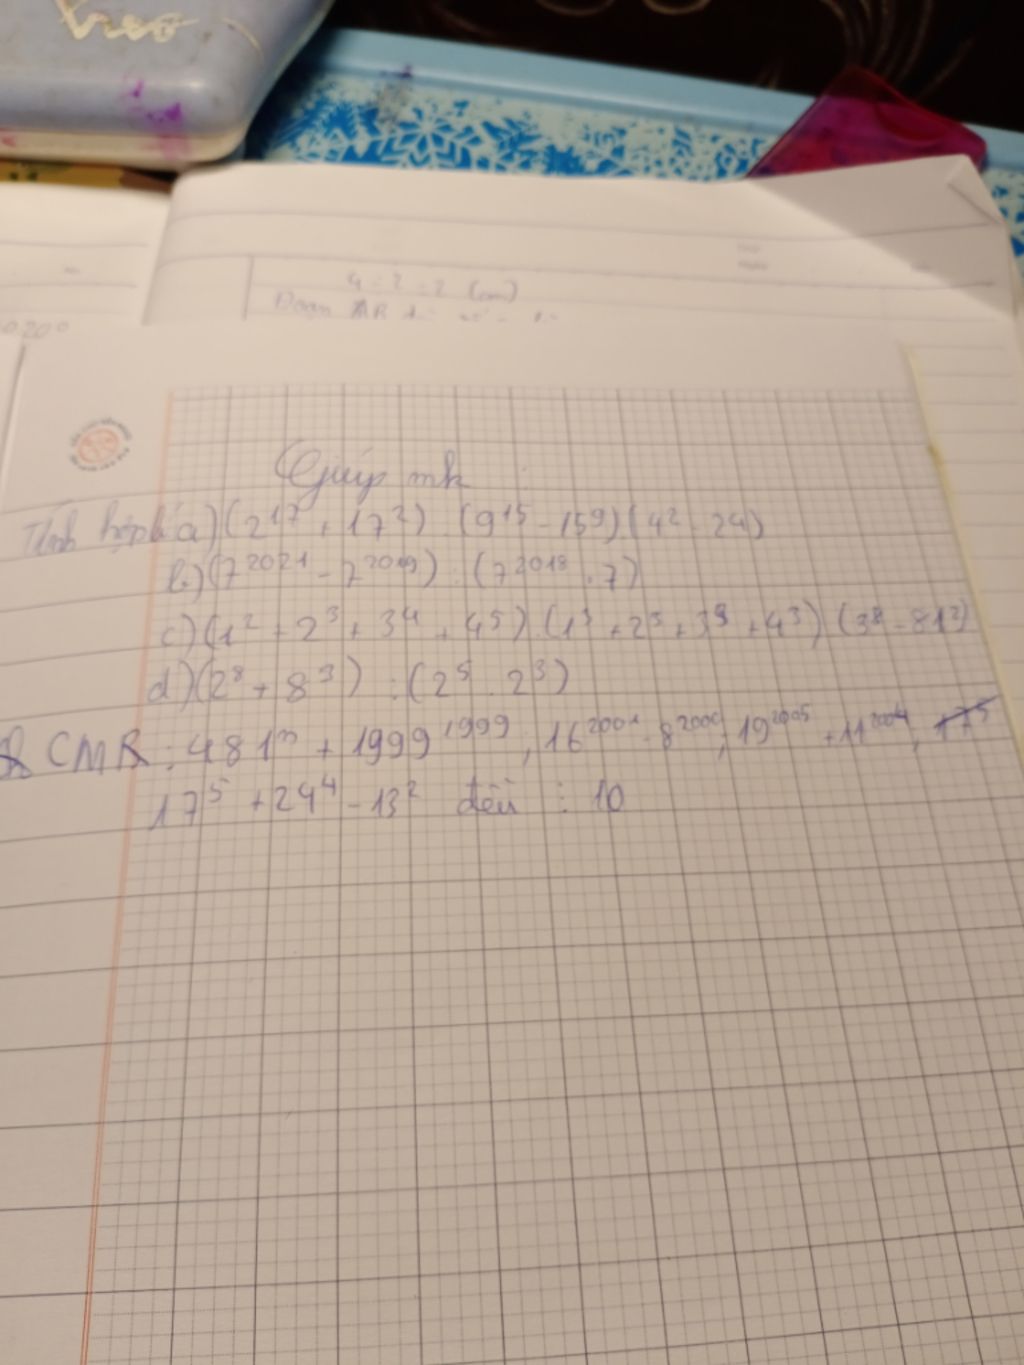 4 : 2 = 2 (cm)
Giúp mk :
Tính hợp lí a) (2¹⁷ + 17²) . (9¹⁵ - 15⁹) (4² - 24)
b) (7²⁰²¹ - 7²⁰¹⁹) : (7²⁰¹⁸ . 7)
c) (1² + 2³ + 3⁴ + 4⁵) . (1³ + 2³ + 3³ + 4³) (3⁸ - 81²)
d) (2⁸ + 8³) : (2⁵ . 2³)
CMR : 481ⁿ + 1999¹⁹⁹⁹ ; 16²⁰⁰¹ - 8²⁰⁰⁰ ; 19²⁰⁰⁵ + 11²⁰⁰⁴ ,
17⁵ + 24⁴ - 13² đều ⋮ 10